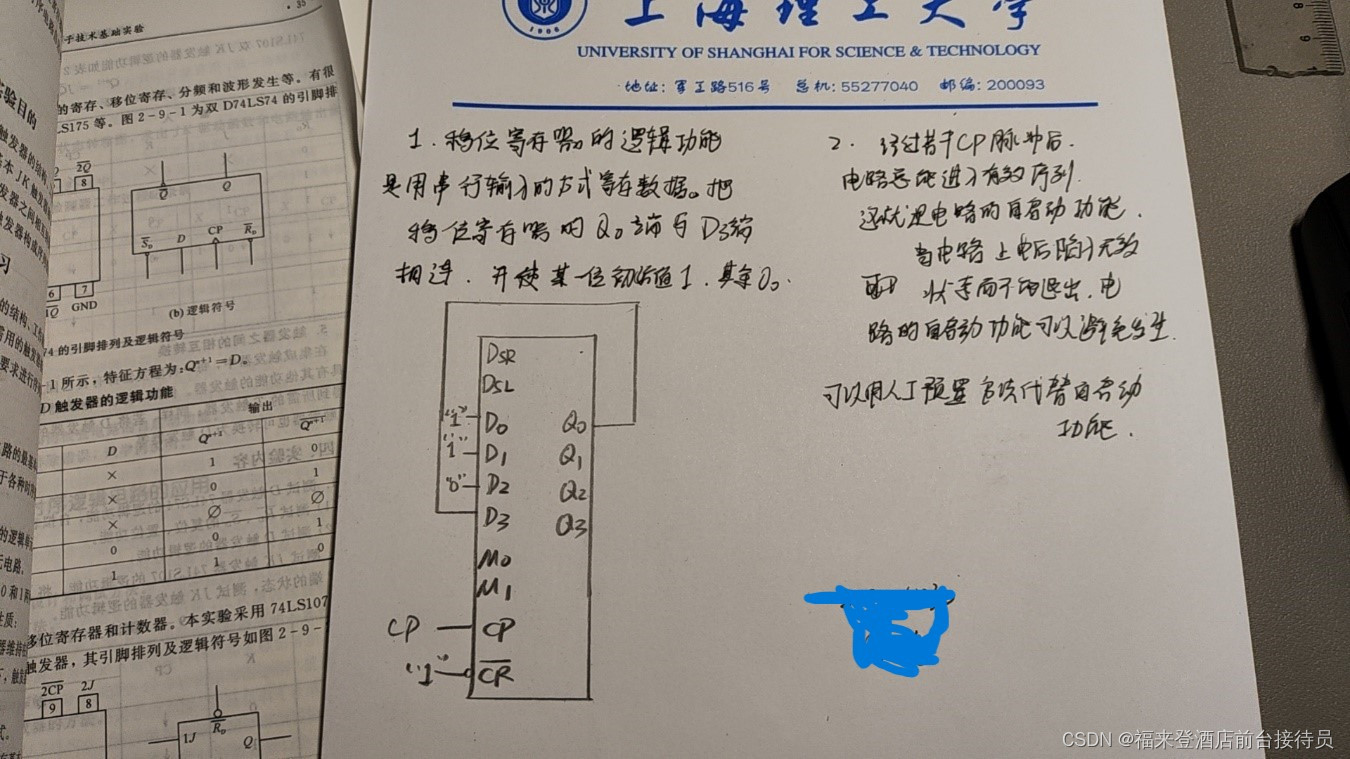 ·35
子技术基础实验
验目的
的寄存、移位寄存、分频和波形发生等。有很
LS175 等。图 2-9-1 为双 D74LS74 的引脚排
2Q
8
Q
Q
S_D D CP R_D
6 7
1Q GND
(b) 逻辑符号
74 的引脚排列及逻辑符号
-1 所示，特征方程为：Qⁿ⁺¹=D。
D 触发器的逻辑功能
输出
D Qⁿ⁺¹ Qⁿ⁺¹
× 1 0
× 0 1
× ∅ ∅
0 0 1
1 1 0
移位寄存器和计数器。本实验采用 74LS107
触发器，其引脚排列及逻辑符号如图 2-9-
2CP 2J
9 8
R_D
1J Q
1906
上海理工大学
UNIVERSITY OF SHANGHAI FOR SCIENCE & TECHNOLOGY
地址: 军工路516号 总机: 55277040 邮编: 200093
1. 移位寄存器的逻辑功能
是用串行输入的方式寄存数据。把
移位寄存器的 Q0 端与 D3端
相连，并使某一位初始值1，其余0。
DSR
DSL
"1" D0 Q0
"1" D1 Q1
"0" D2 Q2
D3 Q3
M0
M1
CP CP
"1" CR
2. 经过若干CP脉冲后，
电路总能进入有效序列
这就是电路的自启动功能．
当电路上电后陷入无效
状态而不能退出，电
路的自启动功能可以避免发生
可以用人工预置方法代替自启动
功能．
CSDN @福来登酒店前台接待员